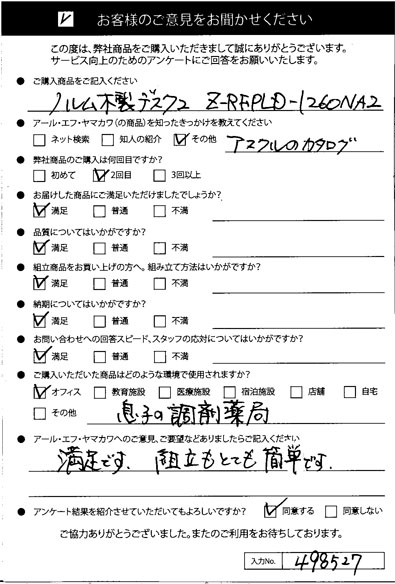 ✓ お客様のご意見をお聞かせください
この度は、弊社商品をご購入いただきまして誠にありがとうございます。
サービス向上のためのアンケートにご回答をお願いいたします。
● ご購入商品をご記入ください
ノルム木製デスク2 Z-RFPLD-1260NA2
● アール・エフ・ヤマカワ(の商品)を知ったきっかけを教えてください
□ ネット検索 □ 知人の紹介 ☑ その他 アスクルのカタログ
● 弊社商品のご購入は何回目ですか?
□ 初めて ☑ 2回目 □ 3回以上
● お届けした商品にご満足いただけましたでしょうか?
☑ 満足 □ 普通 □ 不満
● 品質についてはいかがですか?
☑ 満足 □ 普通 □ 不満
● 組立商品をお買い上げの方へ。組み立て方法はいかがですか?
☑ 満足 □ 普通 □ 不満
● 納期についてはいかがですか?
☑ 満足 □ 普通 □ 不満
● お問い合わせへの回答スピード、スタッフの応対についてはいかがですか?
☑ 満足 □ 普通 □ 不満
● ご購入いただいた商品はどのような環境で使用されますか?
☑ オフィス □ 教育施設 □ 医療施設 □ 宿泊施設 □ 店舗 □ 自宅
□ その他 息子の調剤薬局
● アール・エフ・ヤマカワへのご意見、ご要望などありましたらご記入ください
満足です. 組立もとても簡単です.
● アンケート結果を紹介させていただいてもよろしいですか? ☑ 同意する □ 同意しない
ご協力ありがとうございました。またのご利用をお待ちしております。
入力No. 498527